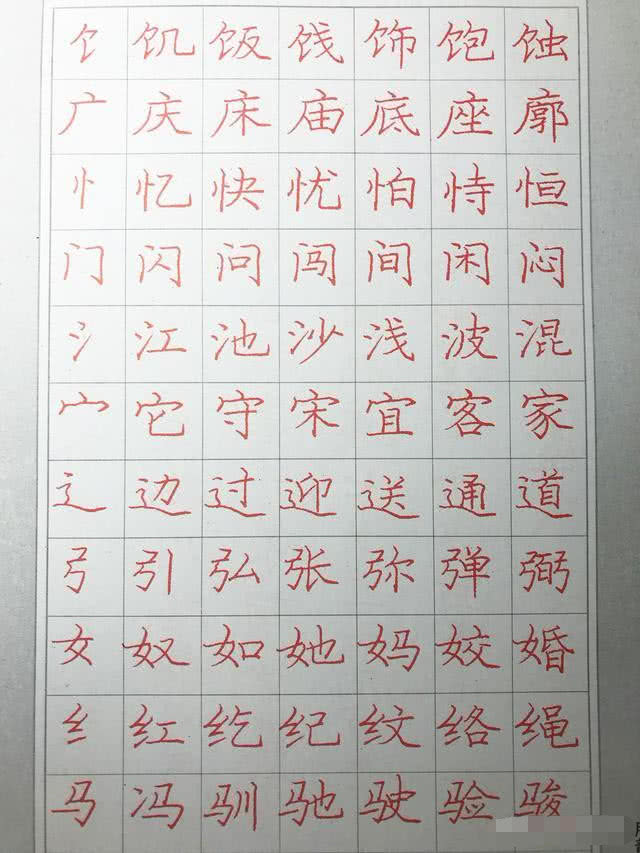 饣 饥 饭 饯 饰 饱 蚀
广 庆 床 庙 底 座 廓
忄 忆 快 忧 怕 恃 恒
门 闪 问 闯 间 闲 闷
氵 江 池 沙 浅 波 混
宀 它 守 宋 宜 客 家
辶 边 过 迎 送 通 道
弓 引 弘 张 弥 弹 弼
女 奴 如 她 妈 姣 婚
纟 红 纥 纪 纹 络 绳
马 冯 驯 驰 驶 验 骏